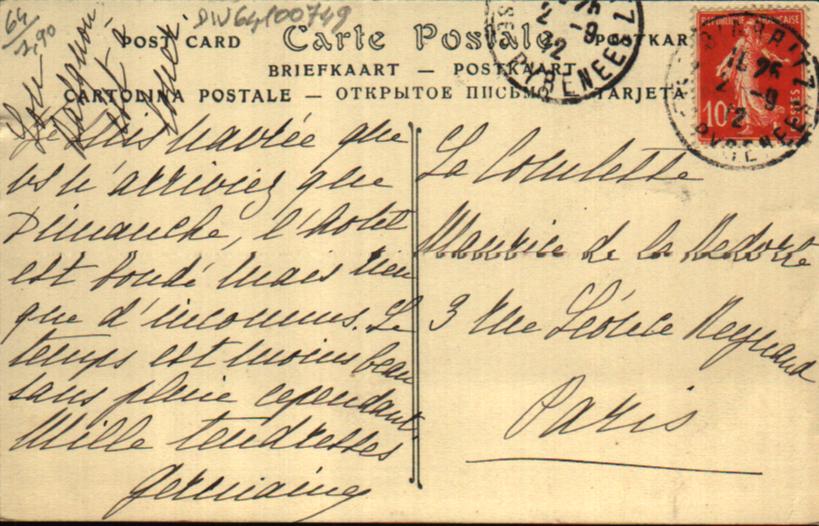 64
2,90
DIV64100749
POST CARD Carte Postale POSTKAR
BRIEFKAART — POSTKAART
CARTOLINA POSTALE — ОТКРЫТОЕ ПИСЬМО TARJETA
Je suis navrée que
vs n'arriviez que
Dimanche, l'hotel
est bondé mais rien
que d'inconnus. Le
temps est moins beau
sans pluie cependant.
Mille tendresses
Germaine
La Comtesse
Maurice de la
3 rue Léonce Reynaud
Paris
REPUBLIQUE FRANÇAISE
10
POSTES
BIARRITZ
2-9
12
PYRENEES